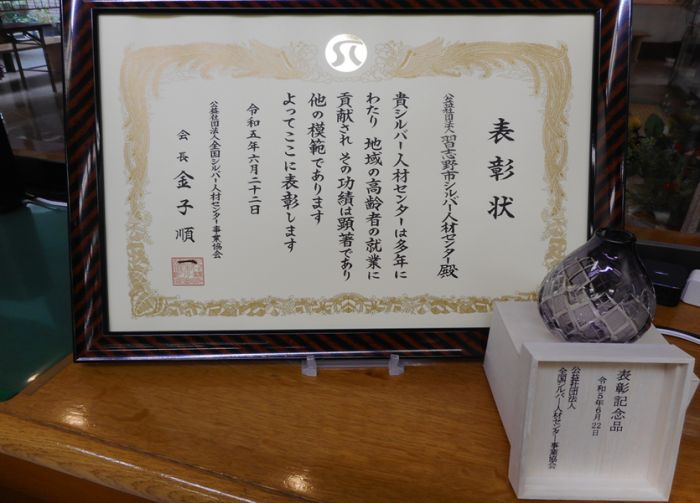 表彰状
公益社団法人 習志野市シルバー人材センター殿
貴シルバー人材センターは多年に
わたり 地域の高齢者の就業に
貢献され その功績は顕著であり
他の模範であります
よってここに表彰します
令和五年六月二十二日
公益社団法人全国シルバー人材センター事業協会
会長 金子順一
表彰記念品
令和5年6月22日
公益社団法人
全国シルバー人材センター事業協会